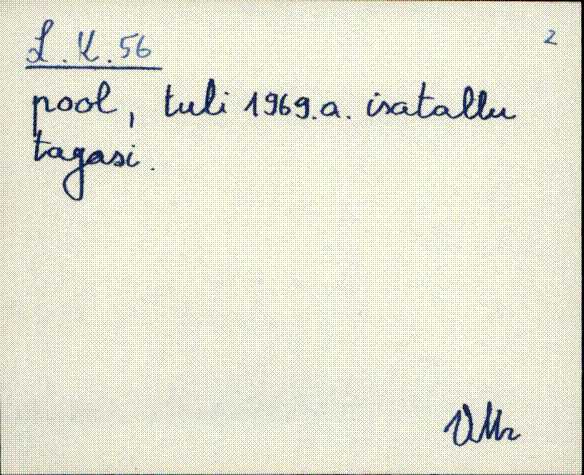 L.K.56
2
pool, tuli 1969.a. isatallu
tagasi.
VMr